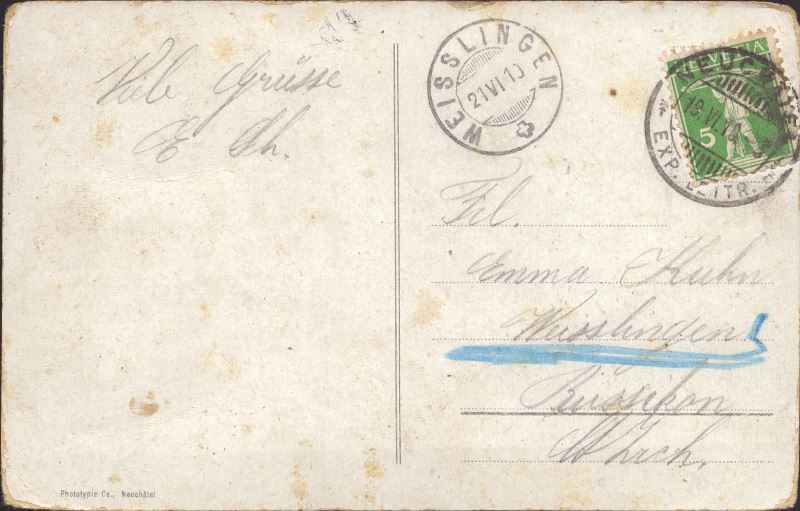 Viele Grüsse
E Sch.
WEISSLINGEN
21 VI 10
HELVETIA
5
NEUCHATEL
VI. 10
EXP. LETTR.
Frl.
Emma Kuhn
Weisslingen
Russikon
Kt Zrch.
Phototypie Co., Neuchâtel